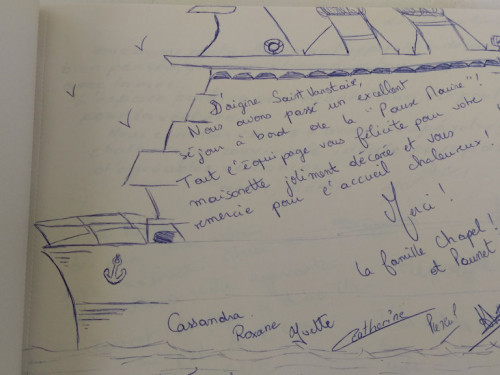 D'origine Saint Vaastaise,
Nous avons passé un excellent
séjour à bord de la "Pause Marine"!
Tout l'équipage vous félicite pour votre
maisonette joliment décorée et vous
remercie pour l'accueil chaleureux!
Merci!
La famille Chapel!
et
Cassandra
Roxane Yvette Catherine Pascal